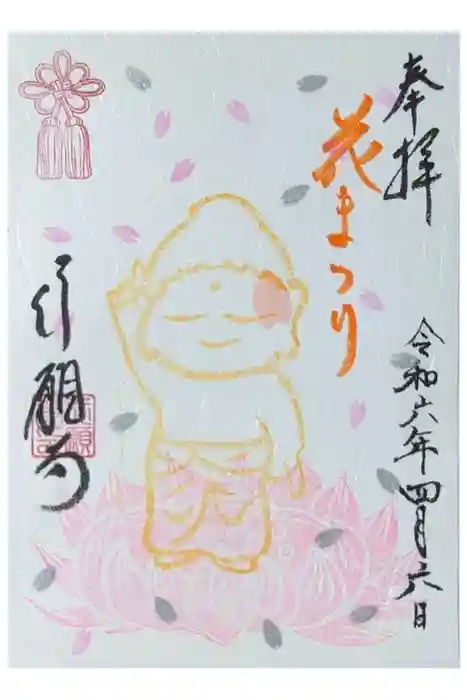 奉拝
花まつり
令和六年四月六日
行願寺